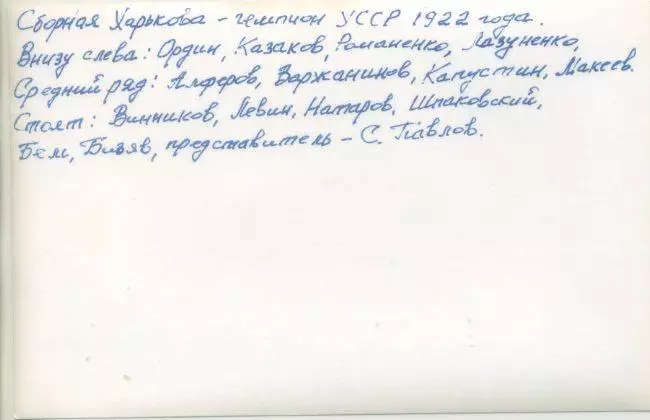 Сборная Харькова – чемпион УССР 1922 года.
Внизу слева: Ордин, Казаков, Романенко, Лазуненко,
Средний ряд: Алферов, Варжанинов, Капустин, Макеев.
Стоят: Винников, Левин, Натаров, Шпаковский,
Бем, Бизяв, представитель – С. Павлов.